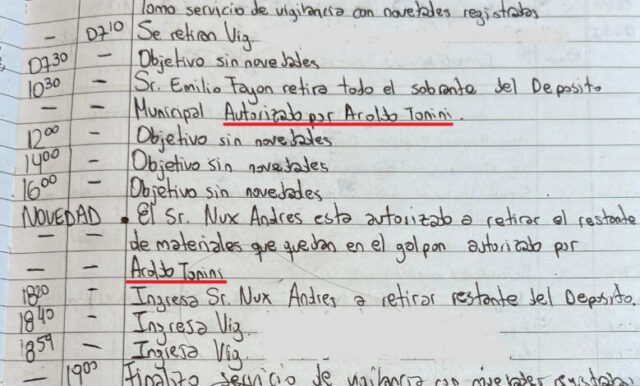 Tomo servicio de vigilancia con novedades registradas
— 0710 Se retiran Vig.
0730 — Objetivo sin novedades
1030 — Sr. Emilio Fayon retira todo el sobrante del Deposito
— — Municipal Autorizado por Aroldo Tonini.
1200 — Objetivo sin novedades
1400 — Objetivo sin novedades
1600 — Objetivo sin novedades
NOVEDAD • El Sr. Nux Andres esta autorizado a retirar el restante
— — de materiales que quedan en el galpon autorizado por
— — Aroldo Tonini
1820 — Ingresa Sr. Nux Andres a retirar restante del Deposito.
1840 — Ingresa Vig.
1859 — Ingresa Vig.
— 1900 Finalizo servicio de vigilancia con novedades registradas